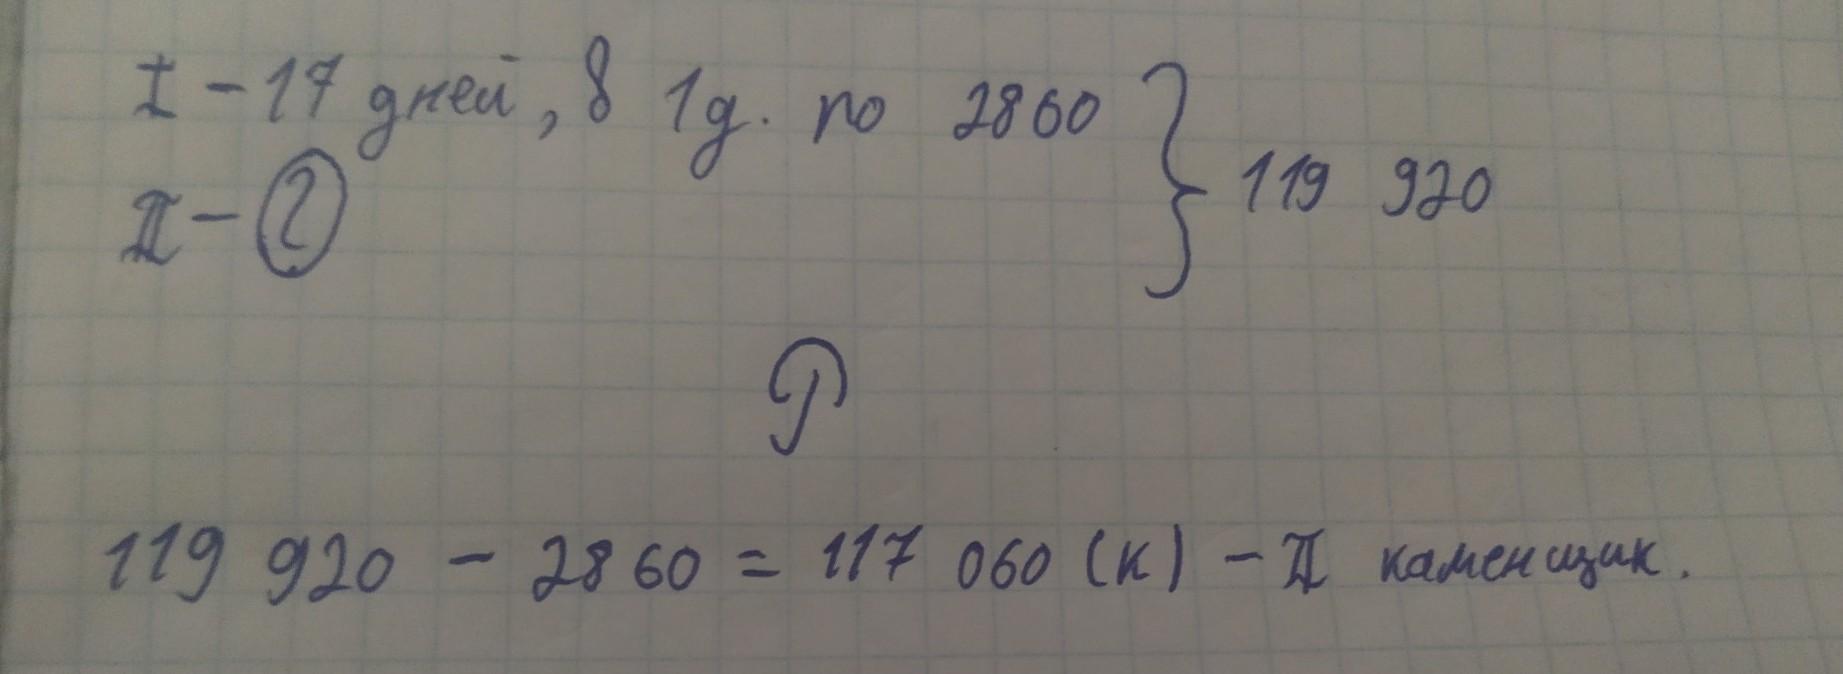 I - 17 дней, в 1д. по 2860 } 119 920
II - ?
Р
119 920 - 2860 = 117 060 (к) - II каменщик.